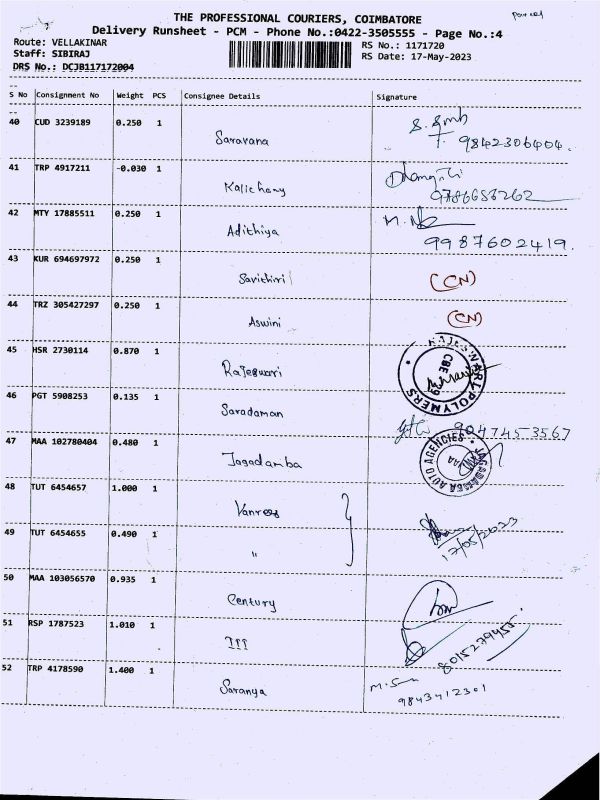 THE PROFESSIONAL COURIERS, COIMBATORE
Parcel
Delivery Runsheet - PCM - Phone No.:0422-3505555 - Page No.:4
Route: VELLAKINAR
RS No.: 1171720
Staff: SIBIRAJ
RS Date: 17-May-2023
DRS No.: DCJB117172004
S No Consignment No Weight PCS Consignee Details Signature
40 CUD 3239189 0.250 1 Saravana 9842306404.
41 TRP 4917211 -0.030 1 9786656262
42 MTY 17885511 0.250 1 Adithiya 9987602419.
43 KUR 694697972 0.250 1 Savithiri (CN)
44 TRZ 305427297 0.250 1 Aswini (CN)
45 HSR 2730114 0.870 1 Rajeswari
RAJESWARI POLYMERS
CBE
46 PGT 5908253 0.135 1 Saradaman 9047453567
47 MAA 102780404 0.480 1 Jagadamba
JAGADAMBA AUTO AGENCIES
48 TUT 6454657 1.000 1
49 TUT 6454655 0.490 1 "
17/05/2023
50 MAA 103056570 0.935 1 Century
51 RSP 1787523 1.010 1 III 8015279455.
52 TRP 4178590 1.400 1 Saranya 9843412301